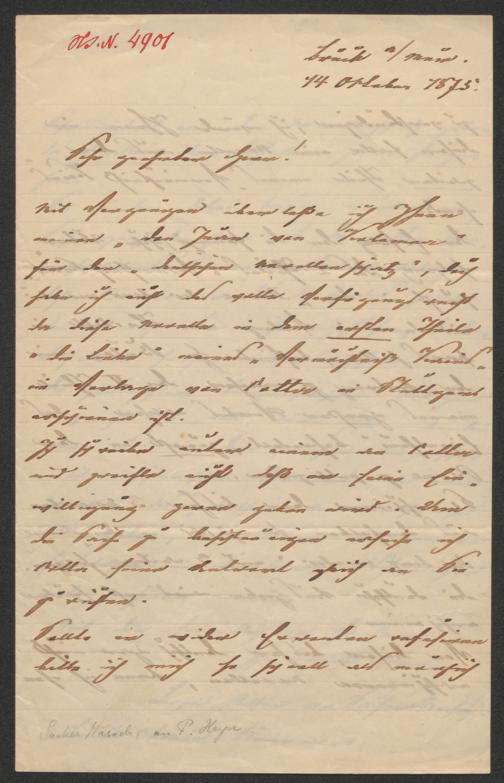 Hs.N. 4901
Bruck a/Mur.
14 Oktober 1875.
Sehr geehrter Herr!
Mit Vergnügen überlasse ich Ihnen
meinen „Don Juan von Kolomea"
für den „deutschen Novellenschatz", doch
habe ich nicht das volle Verfügungsrecht
da diese Novelle in dem ersten Theile
„die Liebe" meines „Vermächtniß Kains"
im Verlage von Cotta in Stuttgart
erschienen ist.
Ich schreibe unter einem an Cotta
und zweifle nicht daß er seine Ein-
willigung geben wird. Um
die Sache zu beschleunigen ersuche ich
Cotta seine Antwort gleich an Sie
zu richten.
Sollte er wider Erwarten
bitte ich mich so schnell als möglich
Sacher Masoch, an P. Heyse